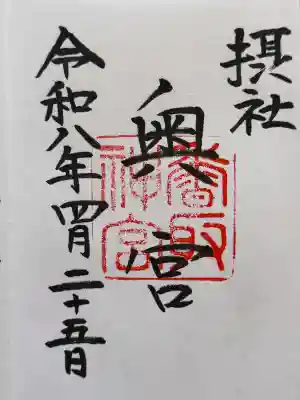 摂社
奥宮
香取神宮
令和八年四月二十五日